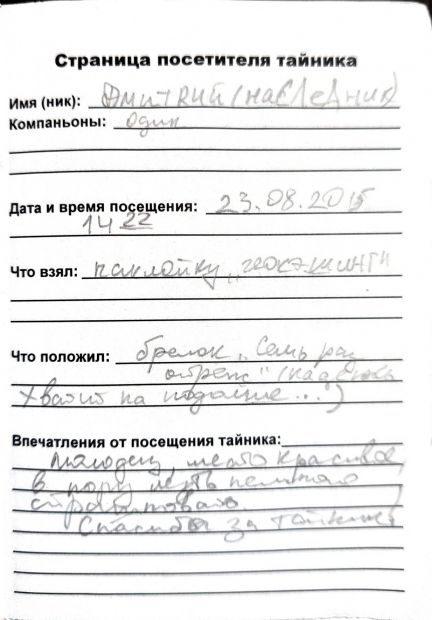 Страница посетителя тайника
Имя (ник): Дмитрий (наследник)
Компаньоны: один
Дата и время посещения: 23.08.2015
14 22
Что взял: наклейку „геокэшинг"
Что положил: брелок „Семь раз
отрежь" (надеюсь
хватит на подольше...)
Впечатления от посещения тайника:
место красивое,
в пору
Спасибо за тайник!